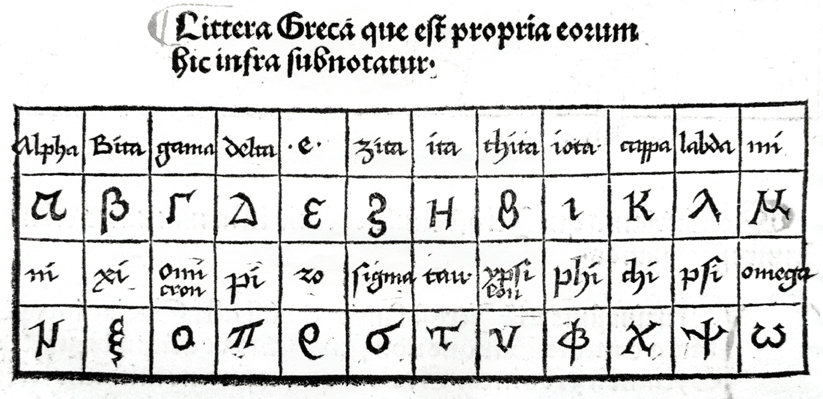 Littera Grecā que est propria eorum
hic infra subnotatur·
Alpha Bita gama delta ·e· zita ita thita iota· cappa labda mi
α β Γ Δ ε ξ H θ ι K λ M
ni xi omi cron pi ro sigma tau· ypsi lon phi chi psi omega
N ξ ο π ρ σ τ υ φ χ ψ ω